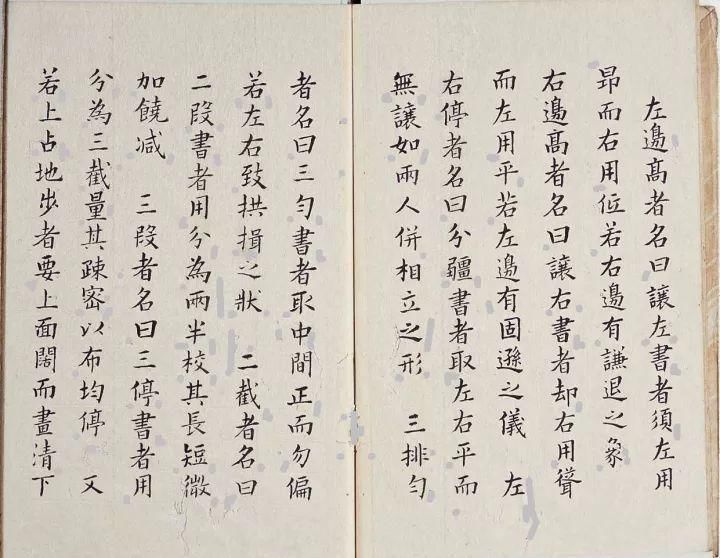 左邊髙者名曰讓左書者須左用
昻而右用低若右邊有謙退之象
右邊髙者名曰讓右書者却右用聳
而左用平若左邊有固遜之儀　左
右停者名曰分疆書者取左右平而
無讓如兩人併相立之形　三排勻
者名曰三勻書者取中間正而勿偏
若左右致拱揖之狀　二截者名曰
二段書者用分為兩半校其長短微
加饒减　三段者名曰三停書者用
分為三截量其疎密以布均停　又
若上占地步者要上面闊而畫清下